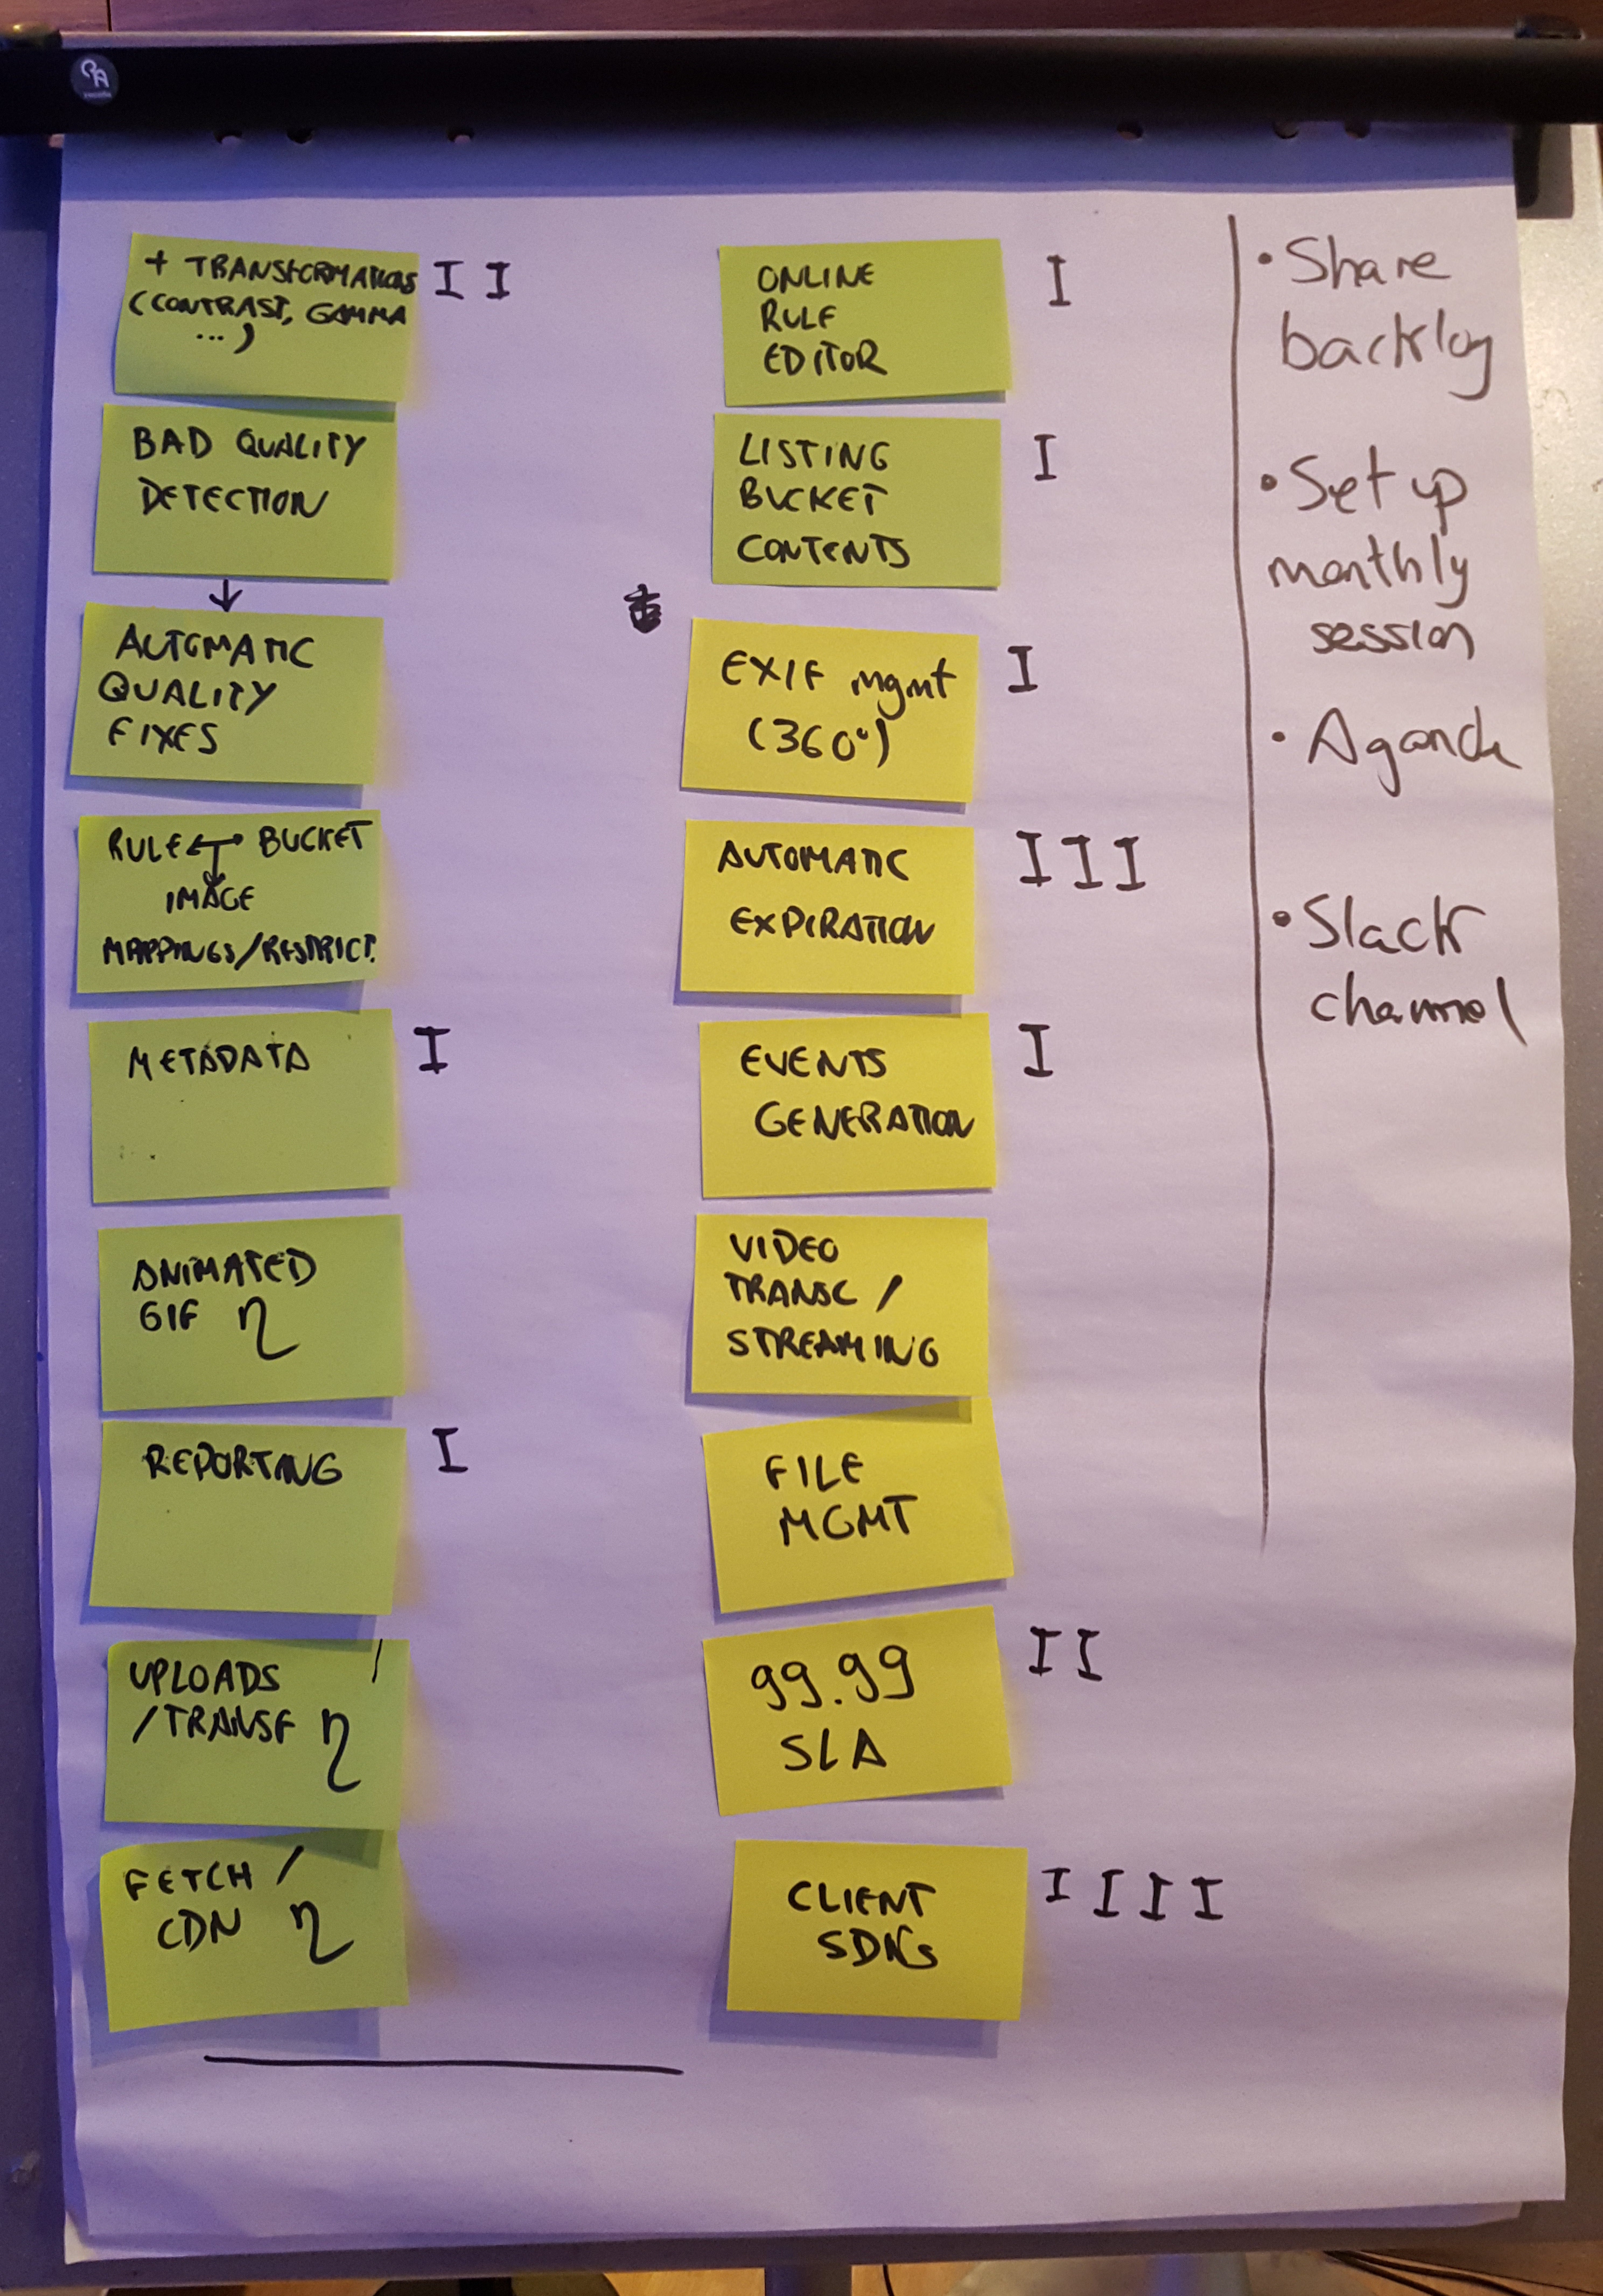 + TRANSFORMATIONS
(CONTRAST, GAMMA
...)
II
BAD QUALITY
DETECTION
↓
AUTOMATIC
QUALITY
FIXES
RULE ↔ BUCKET
IMAGE
MAPPINGS/RESTRICT.
METADATA
I
ANIMATED
GIF η
REPORTING
I
UPLOADS /
/TRANSF η
FETCH /
CDN η
ONLINE
RULE
EDITOR
I
LISTING
BUCKET
CONTENTS
I
EXIF mgmt
(360°)
I
AUTOMATIC
EXPIRATION
III
EVENTS
GENERATION
I
VIDEO
TRANSC /
STREAMING
FILE
MGMT
99.99
SLA
II
CLIENT
SDKs
IIII
• Share
backlog
• Set up
monthly
session
• Aganda
• Slack
channel